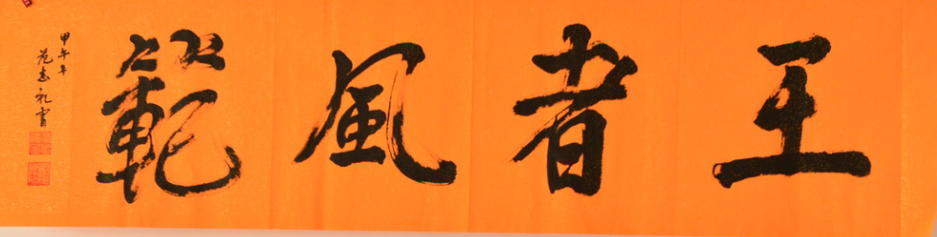 王者風範
甲午年
范志礼書